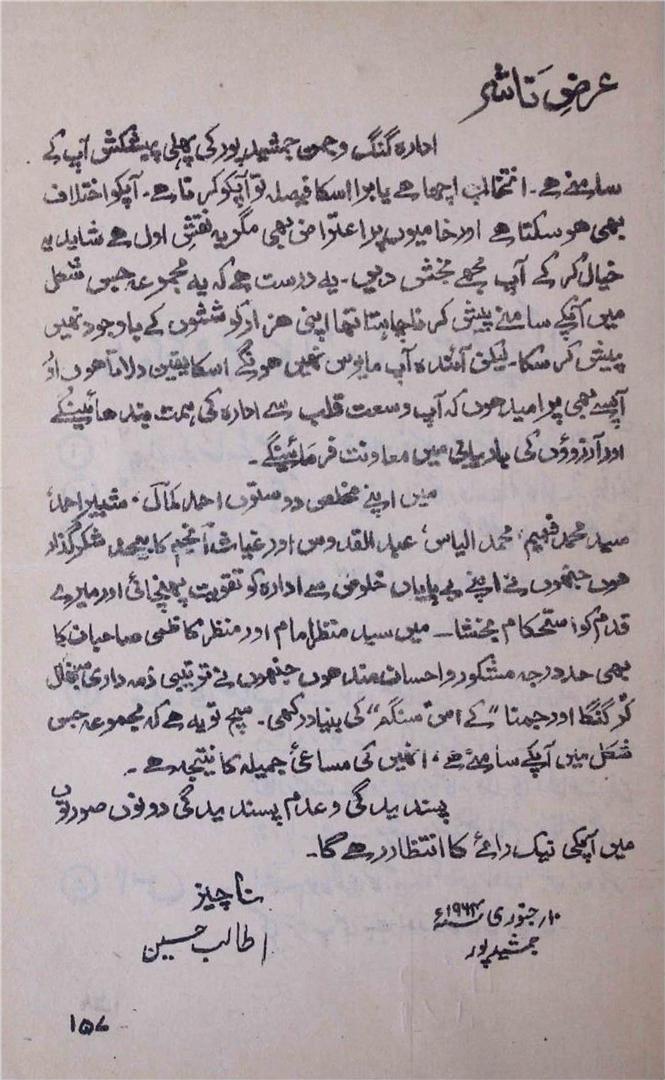 عرضِ ناشر
ادارہ گنگ و جمن جمشید پور کی پہلی پیشکش آپ کے
سامنے ہے۔ انتخاب اچھا ہے یا برا اسکا فیصلہ تو آپکو کرنا ہے۔ آپکو اختلاف
بھی ہو سکتا ہے اور خامیوں پر اعتراض بھی مگر یہ نقشِ اول ہے شاید یہ
خیال کر کے آپ مجھے بخش دیں۔ یہ درست ہے کہ یہ مجموعہ جس شکل
میں آپکے سامنے پیش کرنا چاہتا تھا اپنی ہزار کوششوں کے باوجود نہیں
پیش کر سکا۔ لیکن آئندہ آپ مایوس نہیں ہونگے اسکا یقین دلاتا ہوں اور
آپ سے بھی پر امید ہوں کہ آپ وسعت قلب سے ادارہ کی ہمت بندھائینگے
اور آرزوؤں کی بازیابی میں معاونت فرمائینگے۔
میں اپنے مخلص دوستوں احمد کمال، مشیر احمد،
سید محمد فہیم، محمد الیاس، عبد القدوس اور غیاث انجم کا بیحد شکر گذار
ہوں جنھوں نے اپنے بے پایاں خلوص سے ادارہ کو تقویت پہنچائی اور میرے
قدم کو استحکام بخشا۔ میں سید منظر امام اور منظر کاظمی صاحبان کا
بھی حد درجہ مشکور و احسان مند ہوں جنھوں نے ترتیبی ذمہ داری سنبھال
کر گنگا اور جمنا "کے اس سنگم" کی بنیاد رکھی۔ سچ تو یہ ہے کہ مجموعہ جس
شکل میں آپکے سامنے ہے، انہیں کی مساعیٔ جمیلہ کا نتیجہ ہے۔
پسندیدگی و عدم پسندیدگی دونوں صورتوں
میں آپکی نیک رائے کا انتظار رہے گا۔
ناچیز
طالب حسین
۱۰ جنوری ۱۹۶۳ء
جمشید پور
۱۵۷